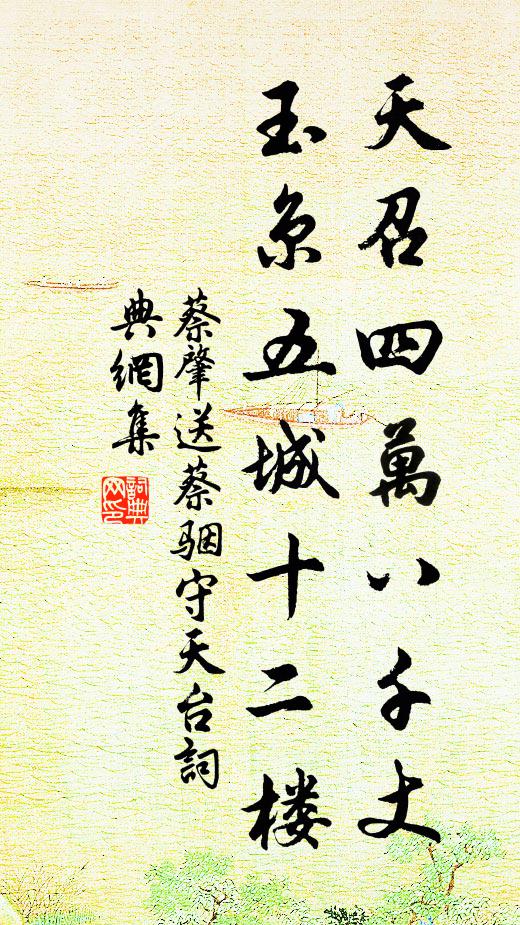 天召四萬八千丈
玉京五城十二楼
蔡肇送蔡駰守天台詞
典網集
詞典网印